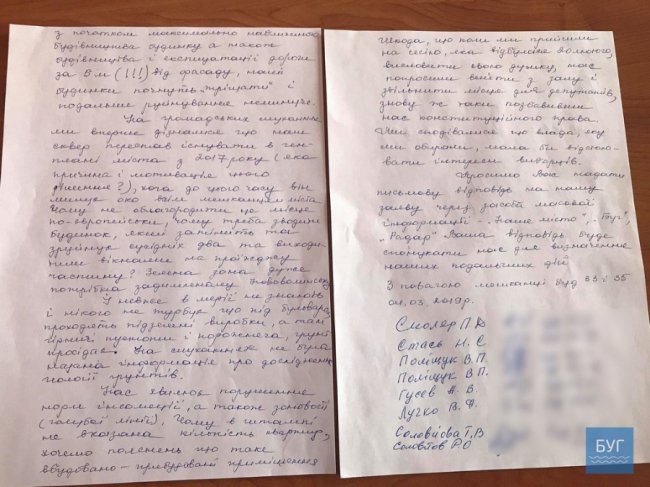 з початком максимально наближеного
будівництва будинку а також
будівництва і експлуатації дороги
за 8 м (!!!) від фасаду, наші
будинки почнуть „тріщати" і
подальше руйнування неминуче.
На громадських слуханнях
ми вперше дізналися що наш
сквер перестав існувати в ген-
плані міста з 2017 року (яка
причина і мотивація цього
рішення?), хоча до цього часу він
милує око всім мешканцям міста
Чому не облагородити це місце
по-європейськи, чому треба зводити
будинок, який затінить та
зруйнує сусідніх два та виходи-
тиме вікнами на проїжджу
частину? Зелена зона дуже
потрібна задимленому Нововолинську
І невже в мерії не знають
і нікого не турбує що під бульваром
проходять підземні виробки, а там
вірніше, пустоти і порожнеча, ґрунт
просідає. На слуханнях не була
надана інформація про дослідження
геології ґрунтів.
Нас хвилює порушення
норм інсоляції, а також зоновості
(голубої лінії). Чому в штампі
не вказана кількість квартир,
хочемо пояснень що таке
вбудовано-прибудовані приміщення
Шкода, що коли ми прийшли
на сесію, яка відбулася 20 лютого,
висловити свою думку, нас
попросили вийти з залу і
звільнити місце для депутатів,
знову ж таки позбавивши
нас конституційного права.
Ми сподівалися що влада, яку
ми обирали, мала би відстою-
вати інтереси виборців.
Просимо Вас надати
письмову відповідь на нашу
заяву через засоби масової
інформації - „Наше місто", „Буг",
„Радар". Ваша відповідь буде
спонукати нас для визначення
наших подальших дій
З повагою мешканці буд 33 і 35
04.03.2019р.
Смоляр П.
Стась Н. С
Поліщук В.П.
Поліщук В.П.
Гусев А. В.
Лучко В. А.
Соловйова Т.В
Соловйов Р О
БУГ